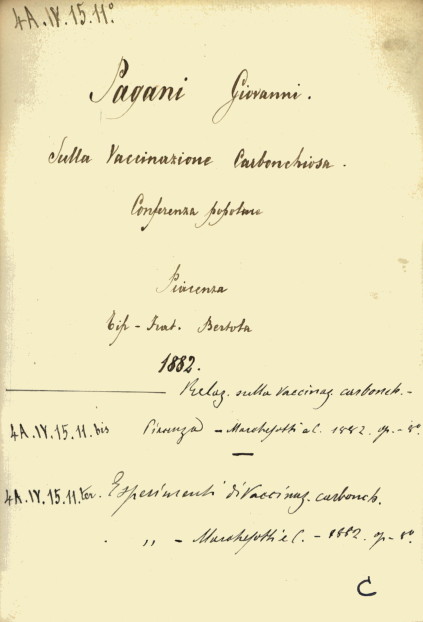 4A.IV.15.11º
Pagani Giovanni.
Sulla Vaccinazione Carbonchiosa.
Conferenza popolare
Piacenza
Tip-Frat. Bertola
1882.
Relaz. sulla vaccinaz. carbonch.-
4A.IV.15.11 bis Piacenza - Marchesotti e C. 1882. op.-8º
4A.IV.15.11 ter. Esperimenti di vaccinaz. carbonch.
. ,, - Marchesotti e C. - 1882. op-8º.
C